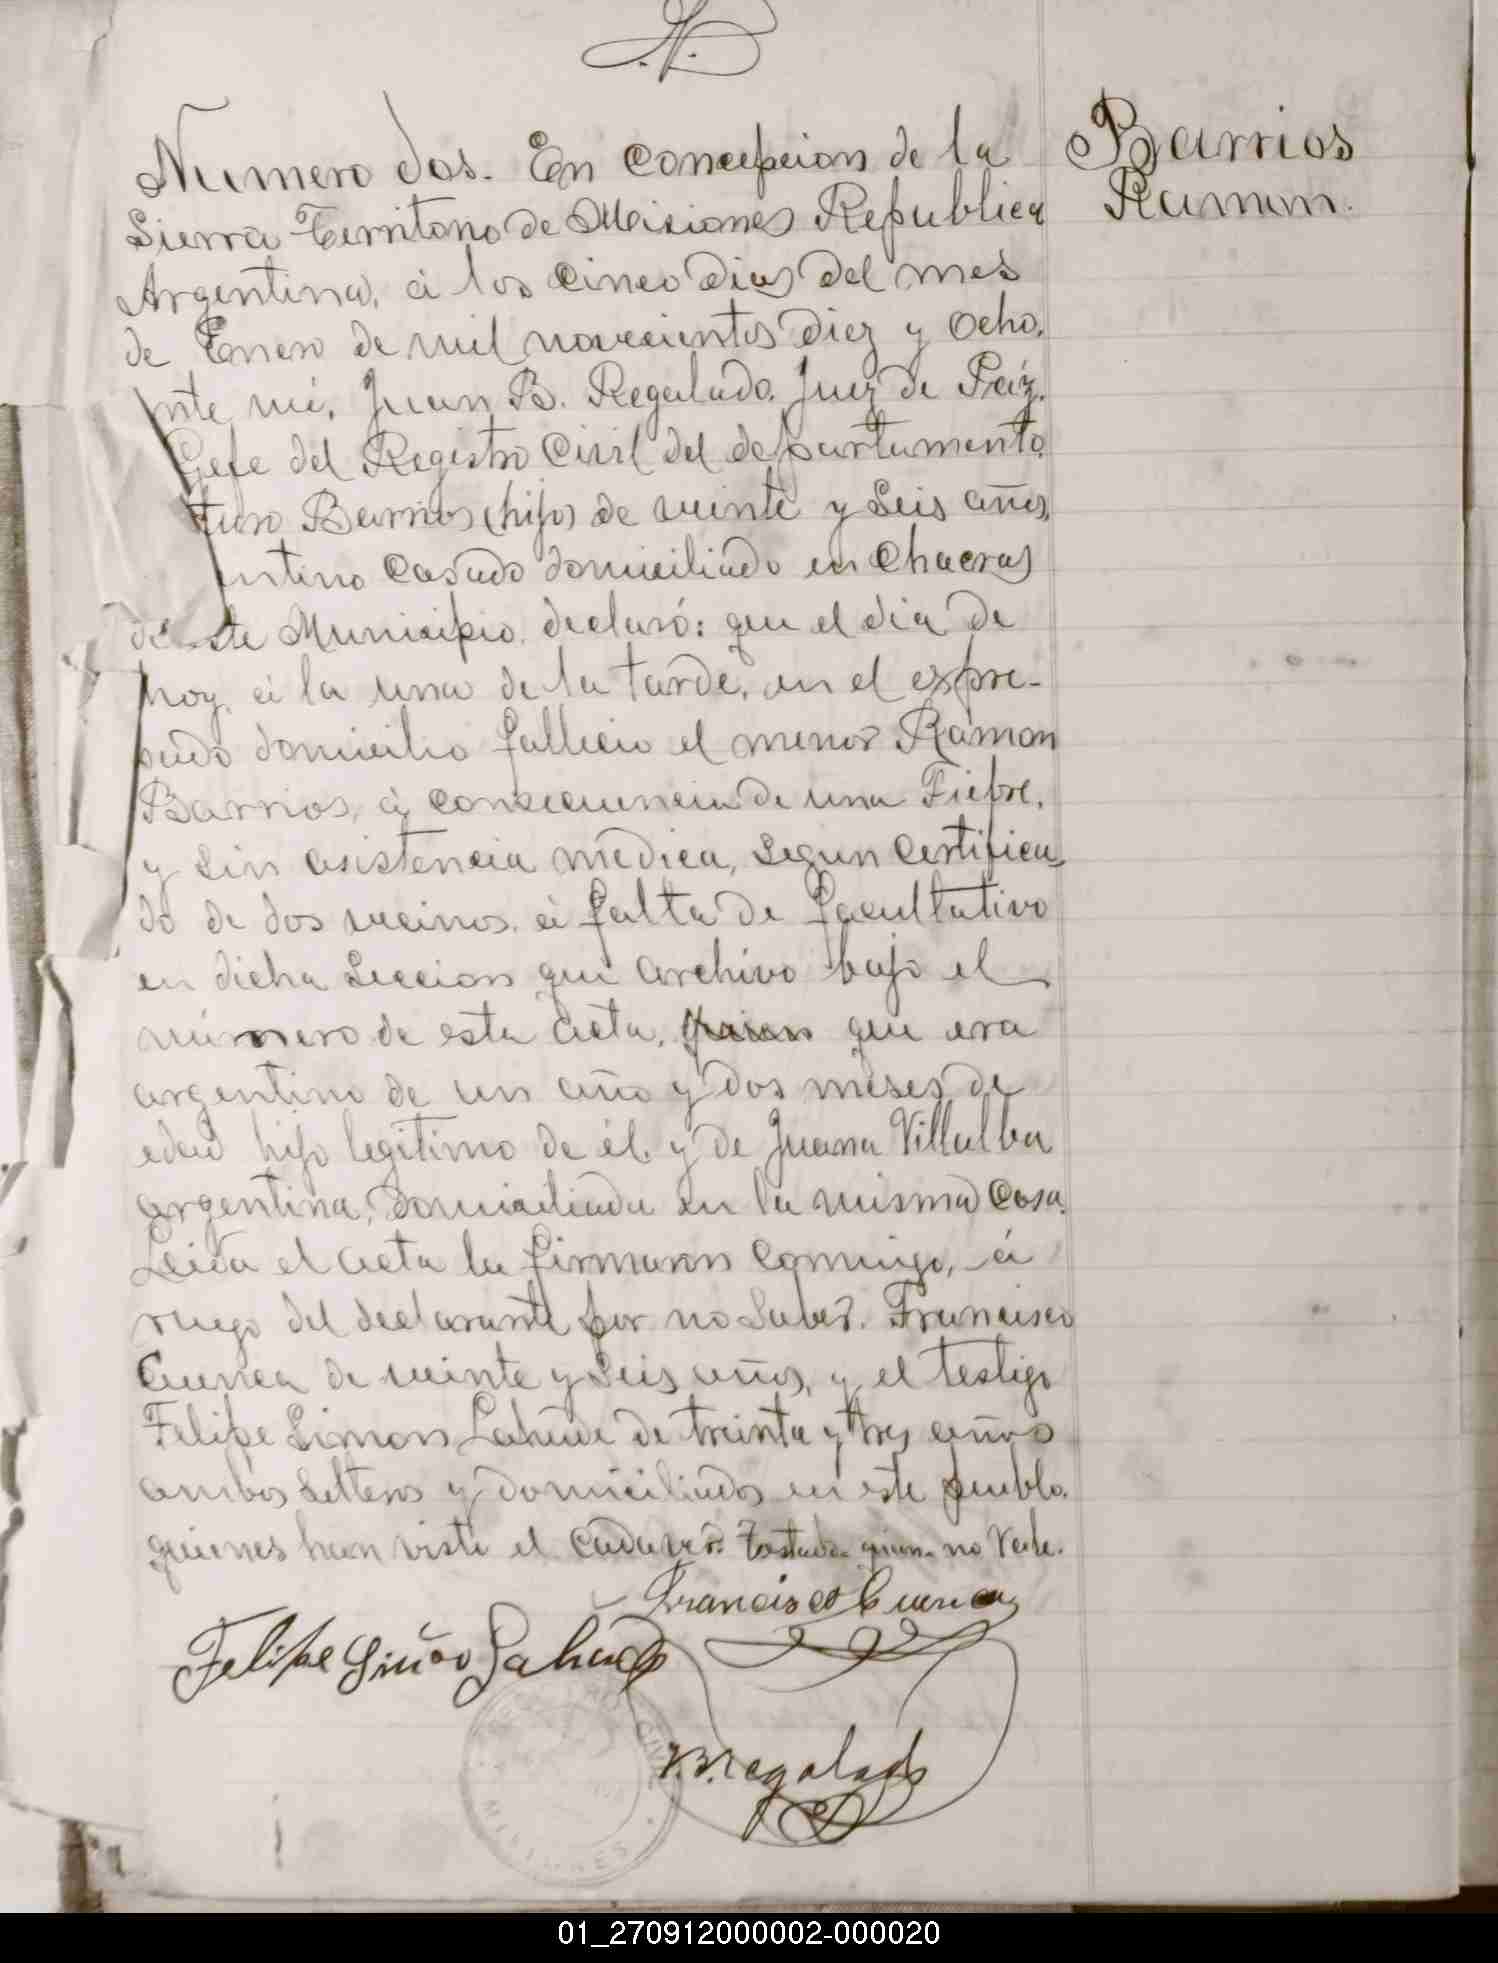 Numero dos. En Concepcion de la
Sierra Territorio de Misiones Republica
Argentina, á los Cinco dias del mes
de Enero de mil novecientos diez y ocho.
nte mi, Juan B. Regalado, Juez de Páz.
Gefe del Registro Civil del departamento.
turo Barrios (hijo) de veinte y seis años,
entino Casado domiciliado en Chacras
de ste Municipio. declaró: que el dia de
hoy, á la una de la tarde, en el expre-
sado domicilio fallecio el menor Ramon
Barrios, á consecuencia de una Fiebre,
y sin asistencia médica, segun Certifica
do de dos vecinos, á falta de facultativo
en dicha seccion que archivo bajo el
número de esta acta, quien que era
argentino de un año y dos meses de
edad hijo legitimo de él y de Juana Villalba
argentina, domiciliada en la misma Casa.
Leida el acta la firmaron conmigo, á
ruego del declarante por no saber. Francisco
Cuenca de veinte y seis años, y el testigo
Felipe Simon de treinta y tres años
ambos solteros y domiciliados en este pueblo.
quienes han visto el cadaver. Testado quien no Vale.
Francisco Cuenca
Felipe
B. Regalado
CIVIL
MISIONES
Barrios
Ramon.
01_270912000002-000020